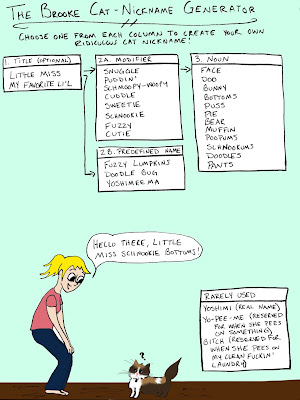 The Brooke Cat-Nickname Generator
Choose one from each column to create your own
ridiculous cat nickname!
1. Title (optional)
Little Miss
My Favorite Li'l
2A. Modifier
Snuggle
Puddin'
Schmoopy-Woopy
Cuddle
Sweetie
Schnookie
Fuzzy
Cutie
2B. Predefined Name
Fuzzy Lumpkins
Doodle Bug
Yoshimeema
3. Noun
Face
Doo
Bunny
Bottoms
Puss
Pie
Bear
Muffin
Poopums
Schnookums
Doodles
Pants
Hello there, Little
Miss Schnookie Bottoms!
?
Rarely Used
Yoshimi (real name)
Yo-Pee-Me (reserved
for when she pees
on something)
Bitch (reserved for
when she pees on
my clean fuckin'
laundry)